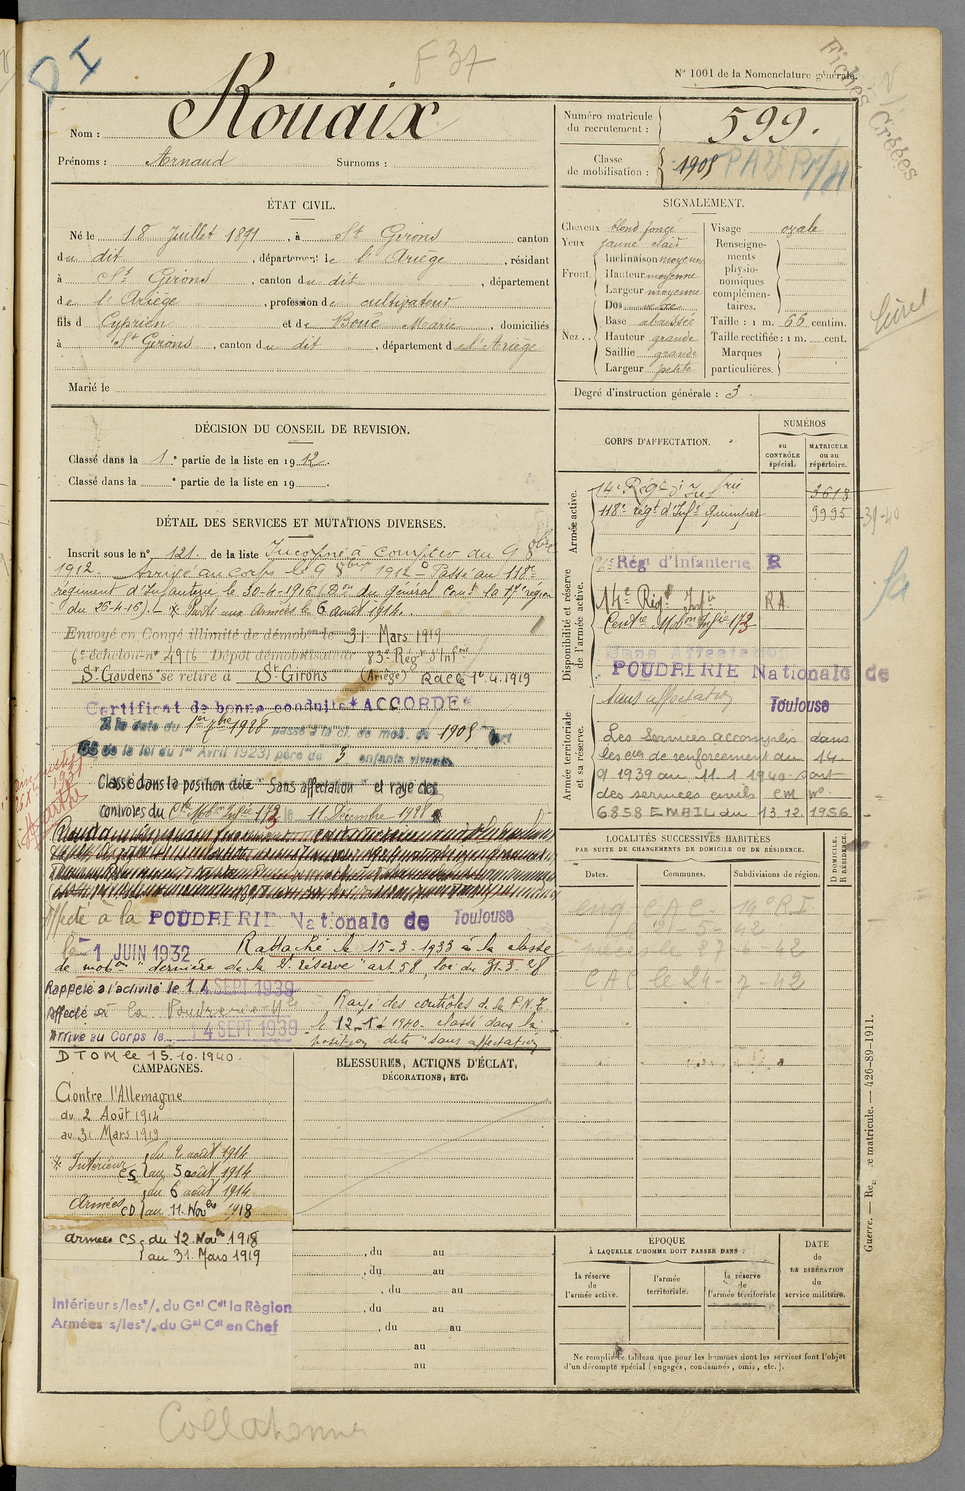 D I
F 37
N° 1001 de la Nomenclature générale.
Fiches Créées
Nom : Rouaix
Prénoms : Arnaud Surnoms :
Numéro matricule du recrutement : 599.
Classe de mobilisation : 1905
ÉTAT CIVIL.
Né le 18 Juillet 1891, à St Girons canton
du dit, département de l'Ariège, résidant
à St Girons, canton du dit, département
de l'Ariège, profession de cultivateur
fils d Cyprien et de Boué Marie, domiciliés
à St Girons, canton du dit, département de l'Ariège
Marié le
SIGNALEMENT.
Cheveux blond foncé
Yeux jaune clair
Front. Inclinaison moyenne
Hauteur moyenne
Largeur moyenne
Nez.. Dos
Base abaissée
Hauteur grande
Saillie grande
Largeur petite
Visage ovale
Renseignements physionomiques complémentaires.
Taille : 1 m. 66 centim.
Taille rectifiée : 1 m. cent.
Marques particulières.
Degré d'instruction générale : 3
DÉCISION DU CONSEIL DE REVISION.
Classé dans la 1e partie de la liste en 1912.
Classé dans la e partie de la liste en 19
DÉTAIL DES SERVICES ET MUTATIONS DIVERSES.
Inscrit sous le n° 121. de la liste Incorporé à compter du 9 8bre
1912. Arrivé au corps le 9 8bre 1912. Passé au 118e
régiment d'Infanterie le 30-4-1916 (Don du général Comt la 17e région
du 26-4-16). Parti aux Armées le 6 août 1914.
Envoyé en Congé illimité de démobon le 31 Mars 1919
6e échelon n° 4916 Dépôt démobilisateur 83e Régt d'Infie
St Gaudens se retire à St Girons (Ariège) Rac le 1er.4.1919
Certificat de bonne conduite "ACCORDÉ"
A la date du 1er 1928 passé à la cl. de mob. de 1905 (Art
58 de la loi du 1er Avril 1923) père de 3 enfants vivants
Classé dans la position dite "Sans affectation" et rayé des
contrôles du Ctre Mobon Infie 173 le 11 Décembre 1928
Affecté à la POUDRERIE Nationale de Toulouse
le 1 JUIN 1932 Rattaché le 15-3-1933 à la classe
de mobon "dernière de la 2e réserve" art 58, loi du 31.3.28
Rappelé à l'activité le 14 SEPT 1939
Affecté à la Poudrerie Nle
Arrivé au Corps le 14 SEPT 1939
Rayé des contrôles de la P.N.T.
le 12-1-1940. Classé dans la
position dite "sans affectation
DTOM le 15.10.1940.
CORPS D'AFFECTATION.
NUMÉROS
au CONTRÔLE spécial.
MATRICULE ou au répertoire.
Armée active.
14e Régt d'Infrie 3618
118e régt d'Infie Quimper 9995
Disponibilité et réserve de l'armée active.
Rég' d'Infanterie R
14e Régt Infie R.A.
Centre Mobon Infie 173
Sans Affectation
POUDRERIE Nationale de
Toulouse
Sans affectation
Armée territoriale et sa réserve.
Les services accomplis dans
les Cies de renforcement du 14-
9 1939 au 11 1 1940 sont
des services civils CM N°
6858 EMAIL du 13.12.1956
LOCALITÉS SUCCESSIVES HABITÉES
PAR SUITE DE CHANGEMENTS DE DOMICILE OU DE RÉSIDENCE.
Dates. Communes. Subdivisions de région. D DOMICILE. R RÉSIDENCE.
CAC le 24-7-42
CAMPAGNES.
Contre l'Allemagne
du 2 Août 1914
au 31 Mars 1919
* Intérieur CS du 2 août 1914
au 5 août 1914
Armées CD du 6 août 1914
au 11 Novbre 1918
armées CS du 12 Novbre 1918
au 31 Mars 1919
Intérieur s/les o/. du Gal Cdt la Région
Armées s/les o/. du Gal Cdt en Chef
BLESSURES, ACTIONS D'ÉCLAT,
DÉCORATIONS, ETC.
, du au
, du au
, du au
, du au
, du au
au
au
ÉPOQUE
À LAQUELLE L'HOMME DOIT PASSER DANS :
la réserve de l'armée active.
l'armée territoriale.
la réserve de l'armée territoriale
DATE de LA LIBÉRATION du service militaire.
Ne remplir ce tableau que pour les hommes dont les services font l'objet
d'un décompte spécial (engagés, condamnés, omis, etc.).
Guerre. — Reg. de matricule. — 426-89-1911.
Collationné